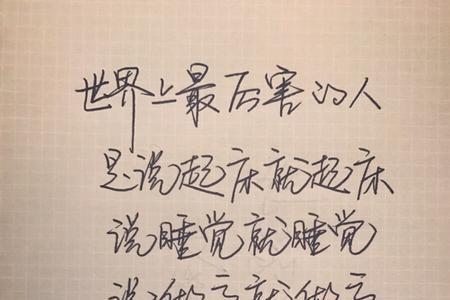 世界上最厉害的人
是说起床就起床
说睡觉就睡觉
说做
就做